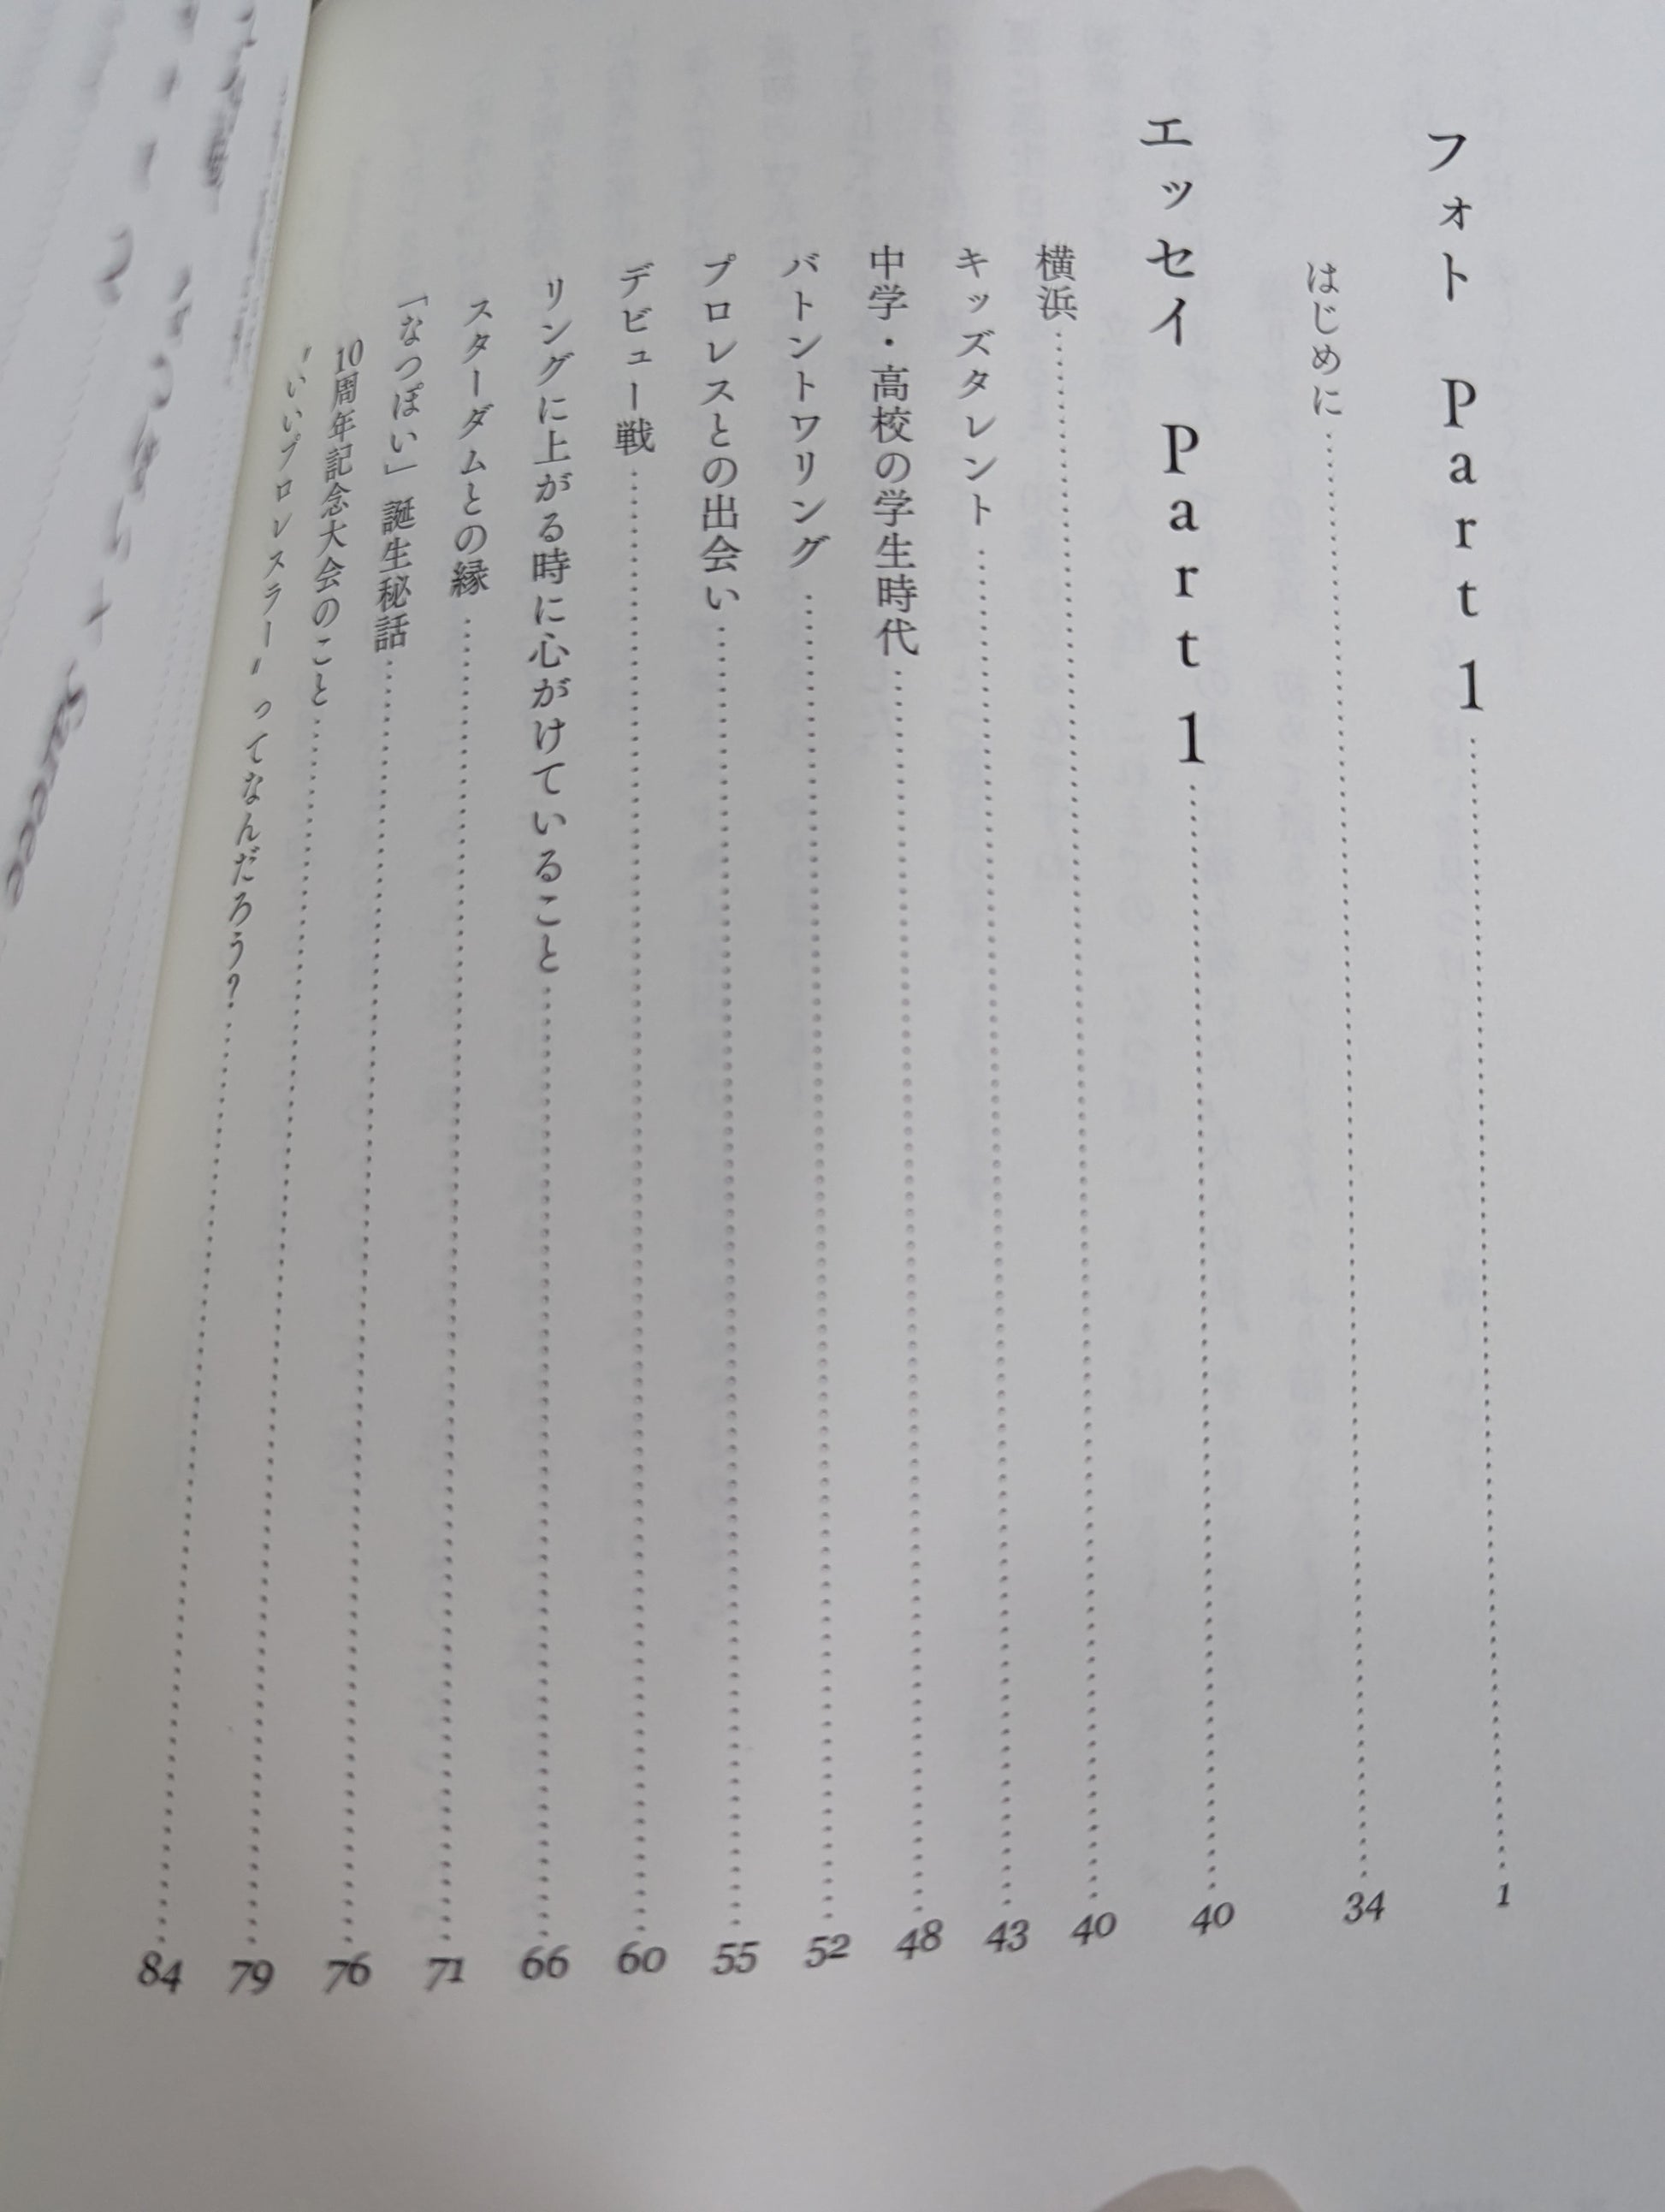 フォト Part 1 …… 1
はじめに …… 34
エッセイ Part 1 …… 40
横浜 …… 40
キッズタレント …… 43
中学・高校の学生時代 …… 48
バトントワリング …… 52
プロレスとの出会い …… 55
デビュー戦 …… 60
リングに上がる時に心がけていること …… 66
スターダムとの縁 …… 71
「なつぽい」誕生秘話 …… 76
10周年記念大会のこと …… 79
〝いいプロレスラー〟ってなんだろう? …… 84